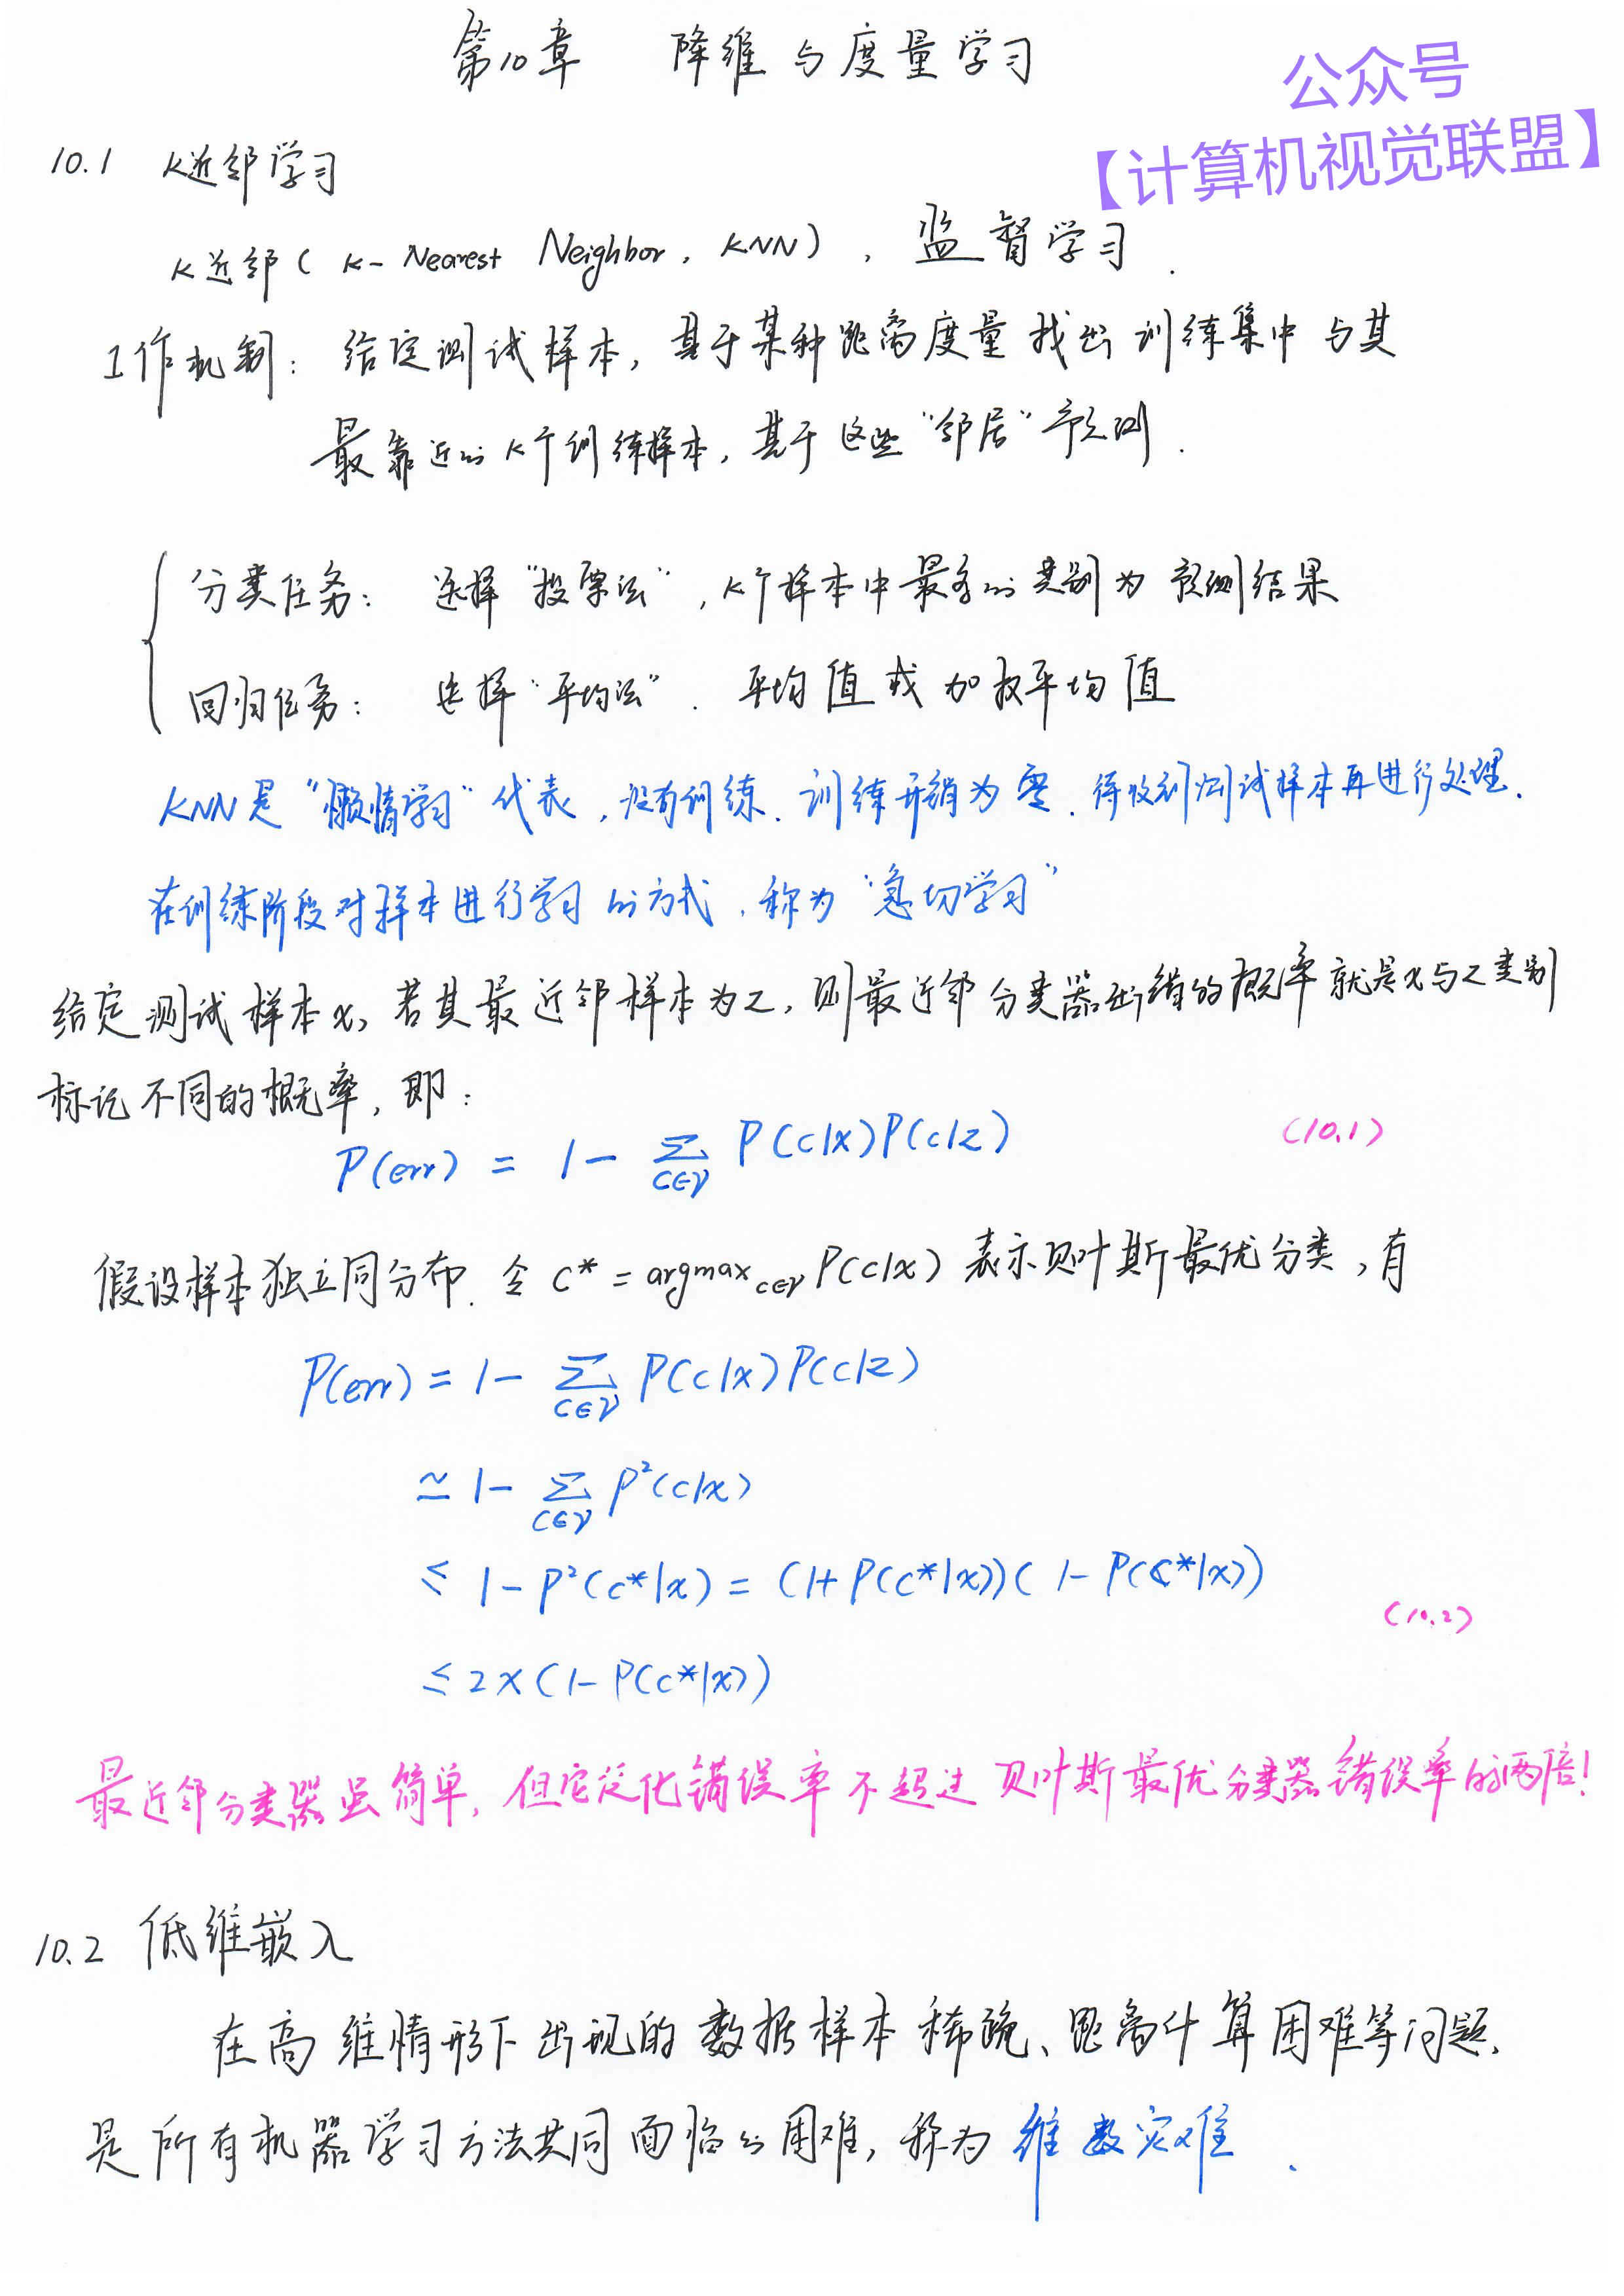 第10章 降维与度量学习
公众号
【计算机视觉联盟】
10.1 K近邻学习
K近邻( K- Nearest Neighbor, KNN), 监督学习.
工作机制: 给定测试样本, 基于某种距离度量找出训练集中与其
最靠近的K个训练样本, 基于这些“邻居”预测.
分类任务: 选择“投票法”, K个样本中最多的类别为预测结果
回归任务: 选择“平均法”. 平均值或加权平均值
KNN是“懒惰学习”代表, 没有训练. 训练开销为零. 待收到测试样本再进行处理.
在训练阶段对样本进行学习的方式, 称为“急切学习”
给定测试样本x, 若其最近邻样本为z, 则最近邻分类器出错的概率就是x与z类别
标记不同的概率, 即:
P(err) = 1 - ∑_{c∈γ} P(c|x)P(c|z) (10.1)
假设样本独立同分布. 令 c* = argmax_{c∈γ} P(c|x) 表示贝叶斯最优分类, 有
P(err) = 1 - ∑_{c∈γ} P(c|x)P(c|z)
≃ 1 - ∑_{c∈γ} P²(c|x)
≤ 1 - P²(c*|x) = (1+P(c*|x))( 1 - P(c*|x))
(10.2)
≤ 2×(1 - P(c*|x))
最近邻分类器虽简单, 但它泛化错误率不超过贝叶斯最优分类器错误率的两倍!
10.2 低维嵌入
在高维情形下出现的数据样本稀疏、距离计算困难等问题,
是所有机器学习方法共同面临的困难, 称为维数灾难.